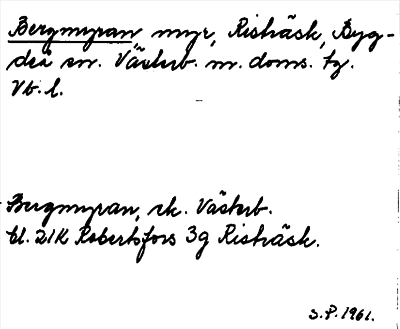 Bergmyran, myr, Risträsk, Byg-
deå sn. Västerb. m. doms. tg.
Vb. l.
Bergmyran, ek. Västerb.
bl. 21K Robertsfors 3g Risträsk.
S.P. 1961.